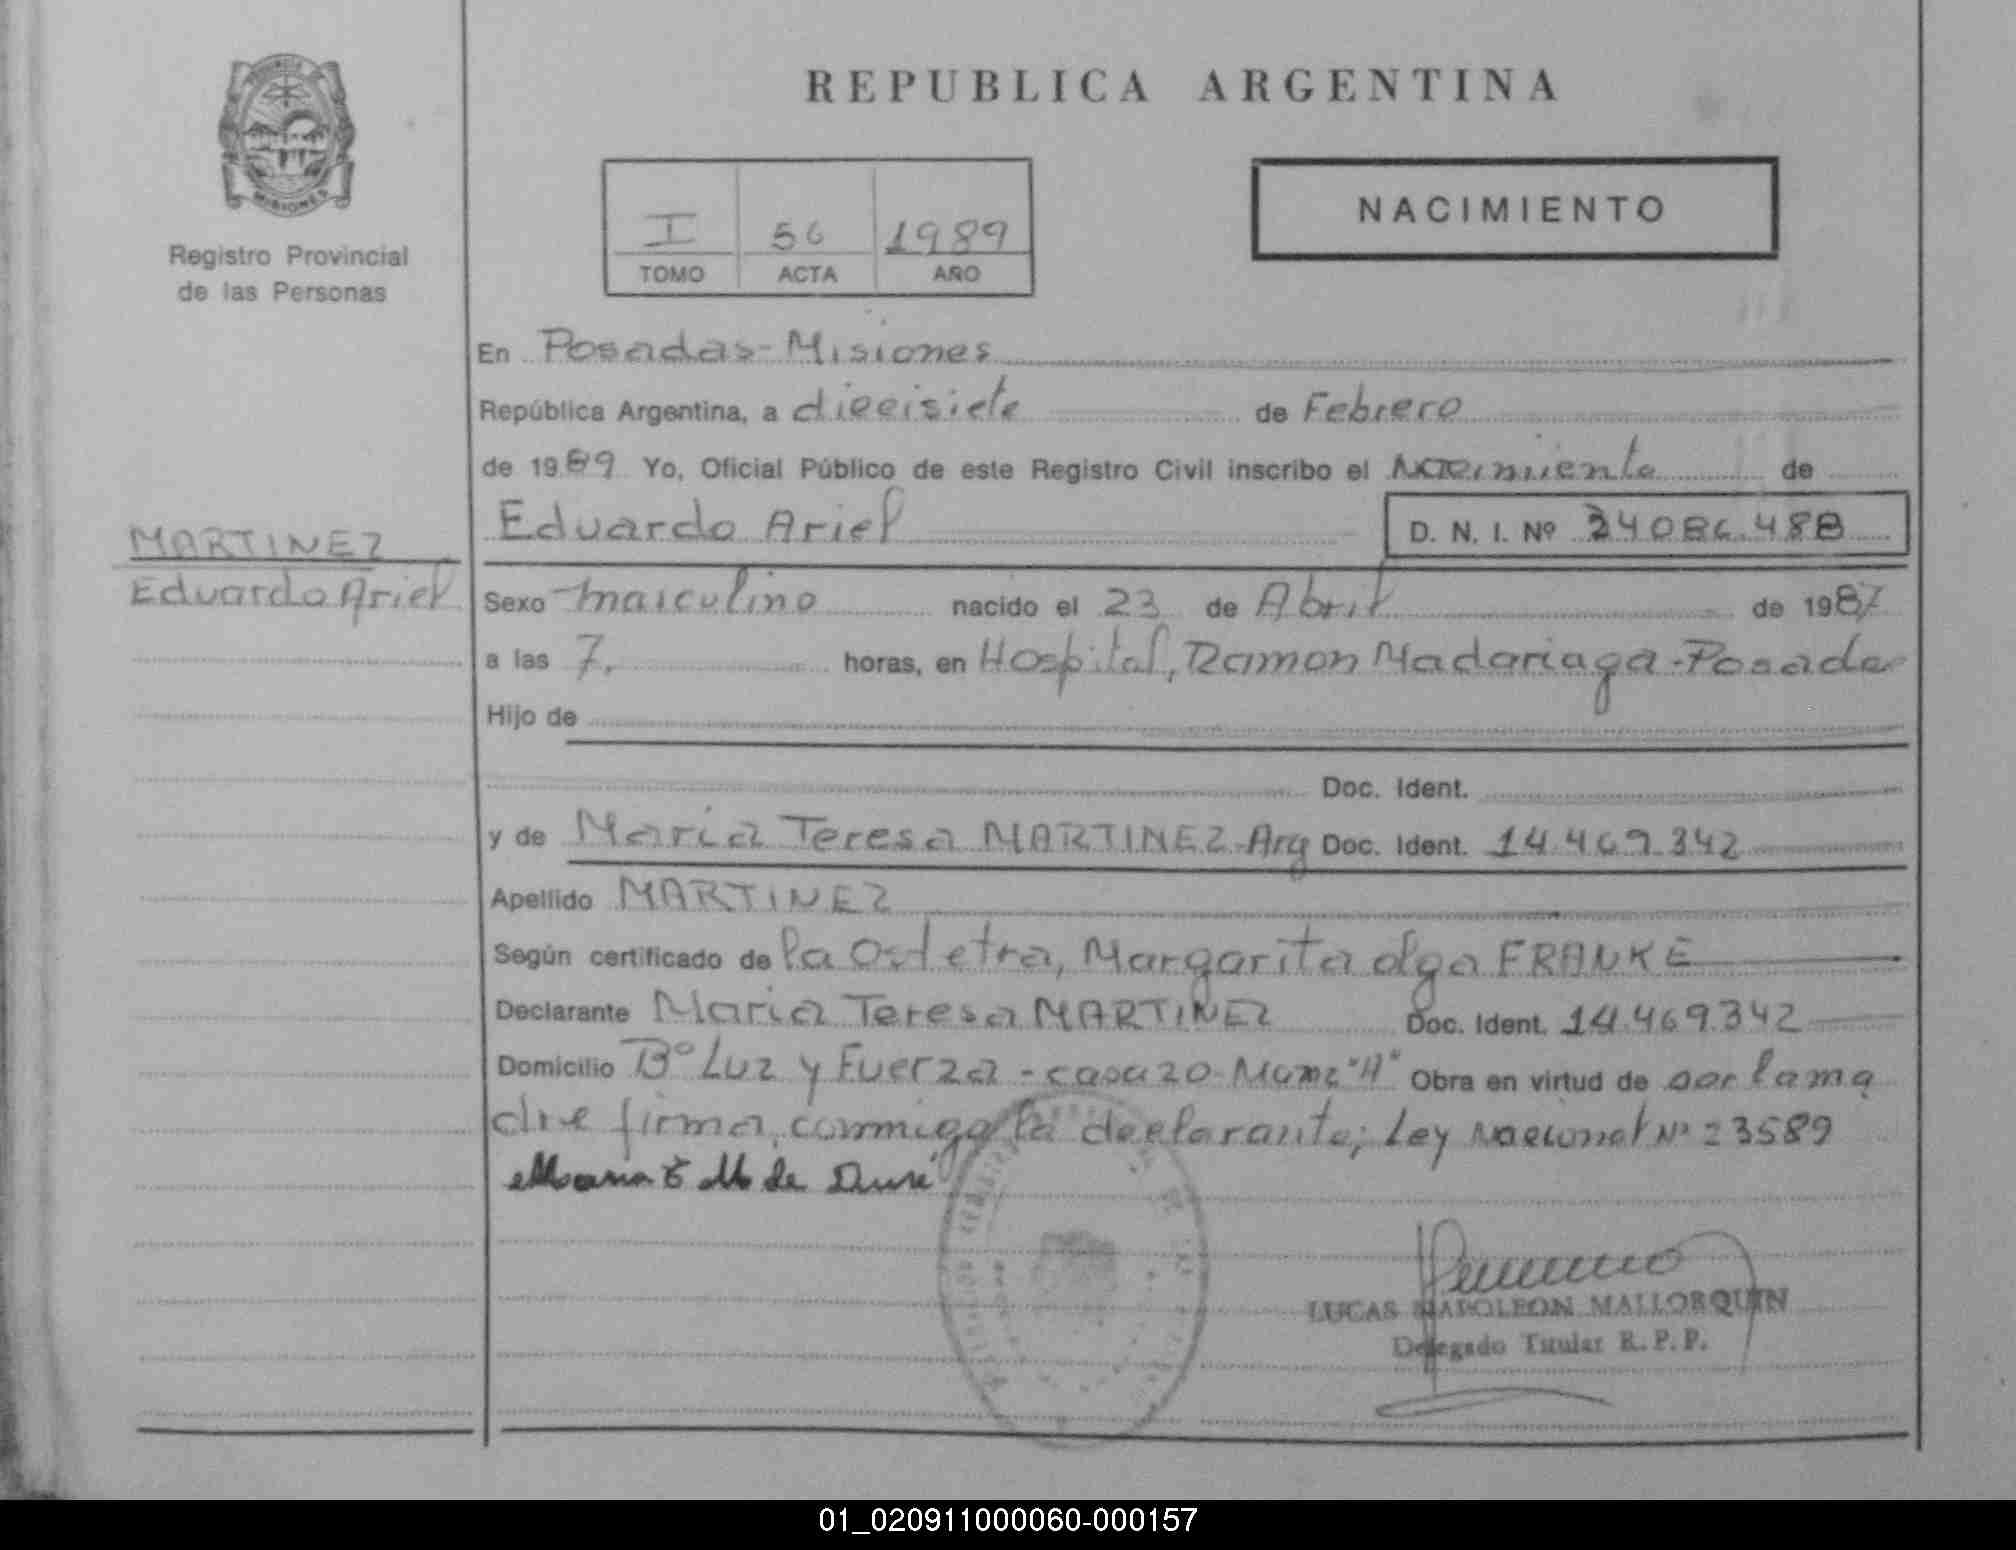 PROVINCIA DE
MISIONES
Registro Provincial
de las Personas
REPUBLICA ARGENTINA
I 56 1989
TOMO ACTA AÑO
NACIMIENTO
En Posadas-Misiones
República Argentina, a diecisiete de Febrero
de 1989 Yo, Oficial Público de este Registro Civil inscribo el Nacimiento de
MARTINEZ
Eduardo Ariel
Eduardo Ariel D. N. I. Nº 34086.488
Sexo masculino nacido el 23 de Abril de 1987
a las 7. horas, en Hospital, Ramon Madariaga-Posadas
Hijo de
Doc. Ident.
y de Maria Teresa MARTINEZ-Arg Doc. Ident. 14.469.342
Apellido MARTINEZ
Según certificado de la Ostetra, Margarita olga FRANKE
Declarante Maria Teresa MARTINEZ Doc. Ident. 14.469.342
Domicilio Bº Luz y Fuerza - casa 20 - Manz "A" Obra en virtud de ser la ma
dre firma, conmigo la declarante; Ley Nacional Nº 23589
LUCAS NAPOLEON MALLORQUIN
Delegado Titular R. P. P.
01_020911000060-000157